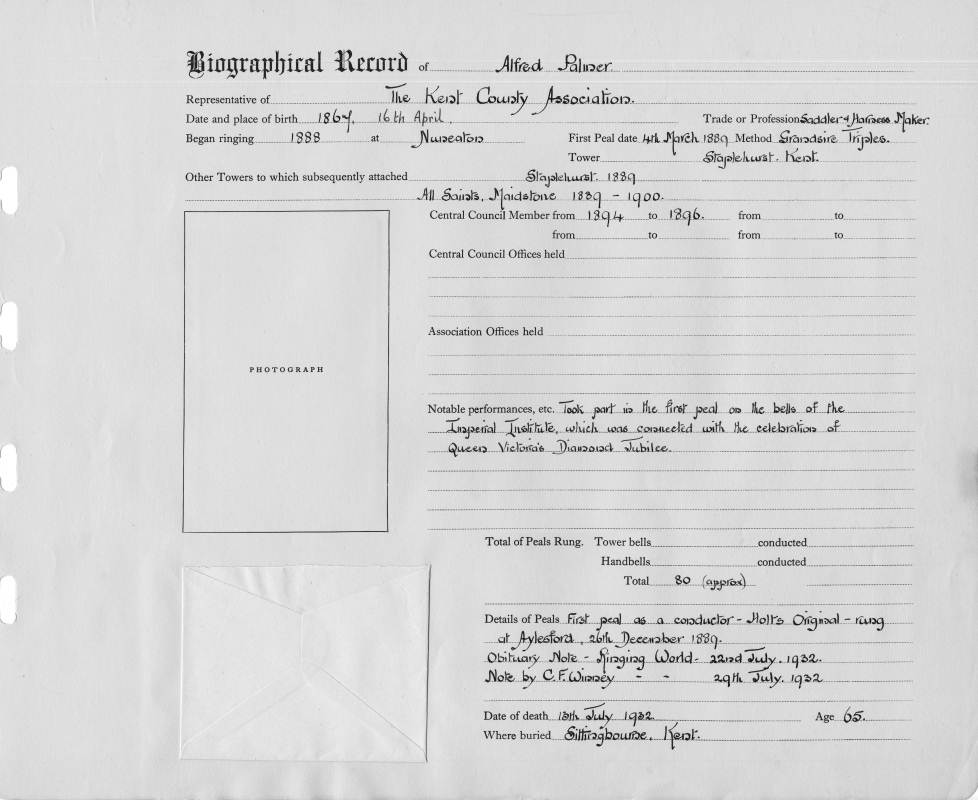 Biographical Record of Alfred Palmer.
Representative of The Kent County Association.
Date and place of birth 1867. 16th April. Trade or Profession Saddler & Harness Maker.
Began ringing 1888 at Nuneaton First Peal date 4th March 1889 Method Grandsire Triples.
Tower Staplehurst. Kent.
Other Towers to which subsequently attached Staplehurst. 1889
All Saints, Maidstone 1889 - 1900.
Central Council Member from 1894 to 1896. from to
from to from to
Central Council Offices held
Association Offices held
PHOTOGRAPH
Notable performances, etc. Took part in the first peal on the bells of the
Imperial Institute, which was connected with the celebration of
Queen Victoria's Diamond Jubilee.
Total of Peals Rung. Tower bells conducted
Handbells conducted
Total 80 (approx)
Details of Peals First peal as a conductor - Holts Original - rung
at Aylesford, 26th December 1889.
Obituary Note - Ringing World - 22nd July. 1932.
Note by C.F. Winney - - 29th July. 1932
Date of death 13th July 1932 Age 65.
Where buried Sittingbourne, Kent.